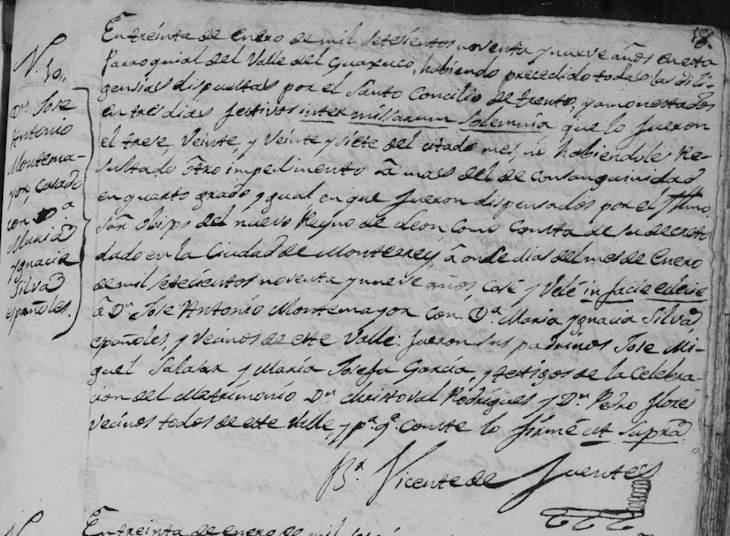 18.
En treinta de enero de mil setecientos noventa y nueve años en esta
Parroquial del Valle del Guaxuco, habiendo precedido todas las dili
gensias dispuestas por el Santo Concilio de trento, y amonestados
en tres dias festivos inter missarum Solemnia que lo fueron
el trese, Veinte, y Veinte y Siete del citado mes, no habiendole Re-
sultado ôtro impedimento â mas del de consanguinidad
en quarto grado y gual en que fueron dispensados por el Yllmo
Señr Obispo del nuevo Reyno de Leon como Consta de su decreto
dado en la Ciudad de Monterrey, â onse dias del mes de Enero
de mil setecientos noventa y nueve años, Casé y Velé in facie eclecie
â Dn Jose Antonio Montemayor con Da Maria Ygnacia Silva,
españoles, y Vecinos de este Valle: fueron sus padrinos Jose Mi-
guel Salasar y Maria Josefa Garcia, y testigos de la Celebra
cion del Matrimonio Dn Christoval Rodrigues y Dn Pedro flores
Vecinos todos de este Valle, y pa. qe. conste lo firmé ut Supra
Br. Vicente de Fuentes
N. 10.
Dn Jose
Antonio
Montema-
yor, Casado
con
a
Maria
Ygnacia
Silva
españoles.
En treinta de enero de mil